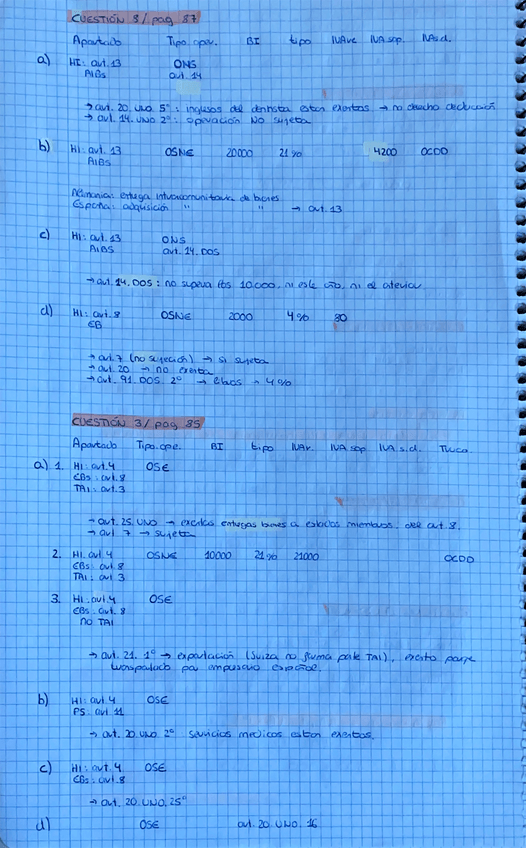 CUESTIÓN 8/ pag 87
Apartado Tipo. oper. BI tipo IVAve IVA sop. IVAs.d.
a) HI: art. 13 ONS
AIBs art. 14
→ art. 20. UNO 5º: ingresos del dentista estan exentos → no derecho deducción
→ art. 14. UNO 2º: operación NO sujeta
b) HI: art. 13 OSNE 20000 21% 4200 OCDD
AIBS
Alemania: entrega intracomunitaria de bienes
España: adquisición " " → art. 13
c) HI: art. 13 ONS
AIBS art. 14. DOS
→ art. 14. DOS: no supera los 10.000, ni este año, ni el anterior
d) HI: art. 8 OSNE 2000 4% 80
EB
→ art. 7 (no sujeción) → si sujeta
→ art. 20 → no exenta
→ art. 91. DOS. 2º → libros → 4%
CUESTIÓN 3/ pag 85
Apartado Tipo.ope. BI tipo IVAr. IVA sop IVA s.d.
a) 1. HI: art. 4 OSE
EBs: art. 8
TAI: art. 3
→ art. 25. UNO → exentas entregas bienes a estados miembros, art. 8.
→ art 7 → sujeta
2. HI. art. 4 OSNE 10000 21% 21000 OCDD
EBs: art. 8
TAI: art 3
3. HI: art. 4 OSE
EBs: art. 8
NO TAI
→ art. 21. 1º → exportación (Suiza no forma parte TAI), exento porque
transportado por empresario español.
b) HI: art 4 OSE
PS: art 11
→ art. 20. UNO 2º servicios medicos estan exentos.
c) HI: art. 4 OSE
EBs: art. 8
→ art. 20. UNO. 25º
d) OSE art. 20 UNO. 16